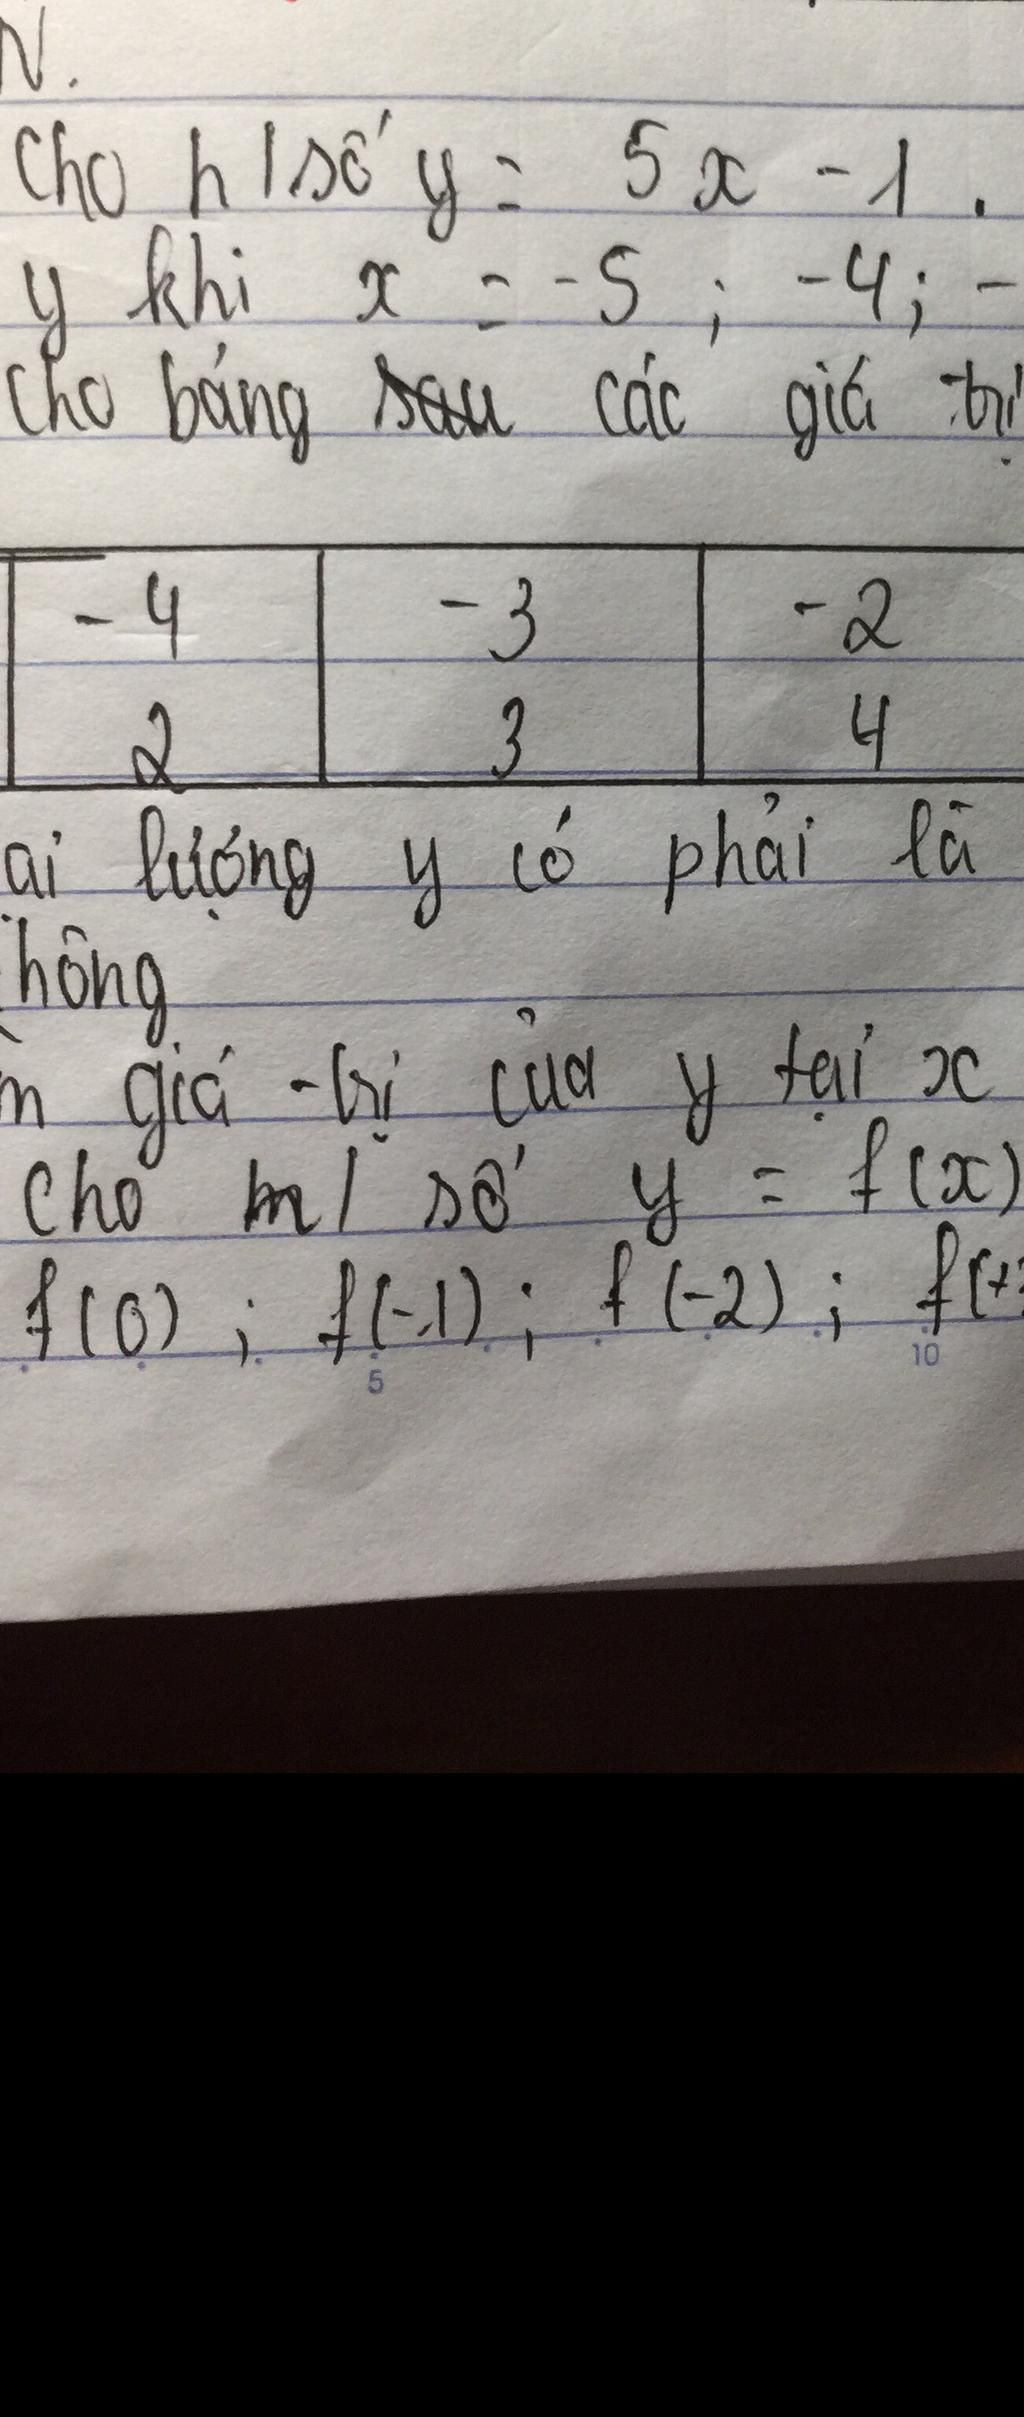 N.
Cho h/số y = 5x - 1.
y khi x = -5 ; -4 ; -
Cho bảng sau các giá trị
-4 -3 -2
2 3 4
ại lượng y có phải là
hông
m giá trị của y tại x
Cho m/ số y = f(x)
f(0) ; f(-1) ; f(-2) ; f(+
5 10